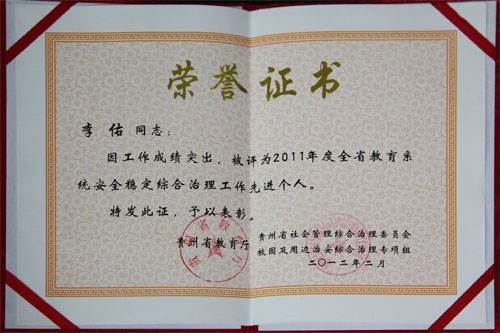 荣誉证书
李佑 同志：
因工作成绩突出，被评为2011年度全省教育系
统安全稳定综合治理工作先进个人。
特发此证，予以表彰。
贵州省教育厅
贵州省社会管理综合治理委员会
校园及周边治安综合治理专项组
二〇一二年二月